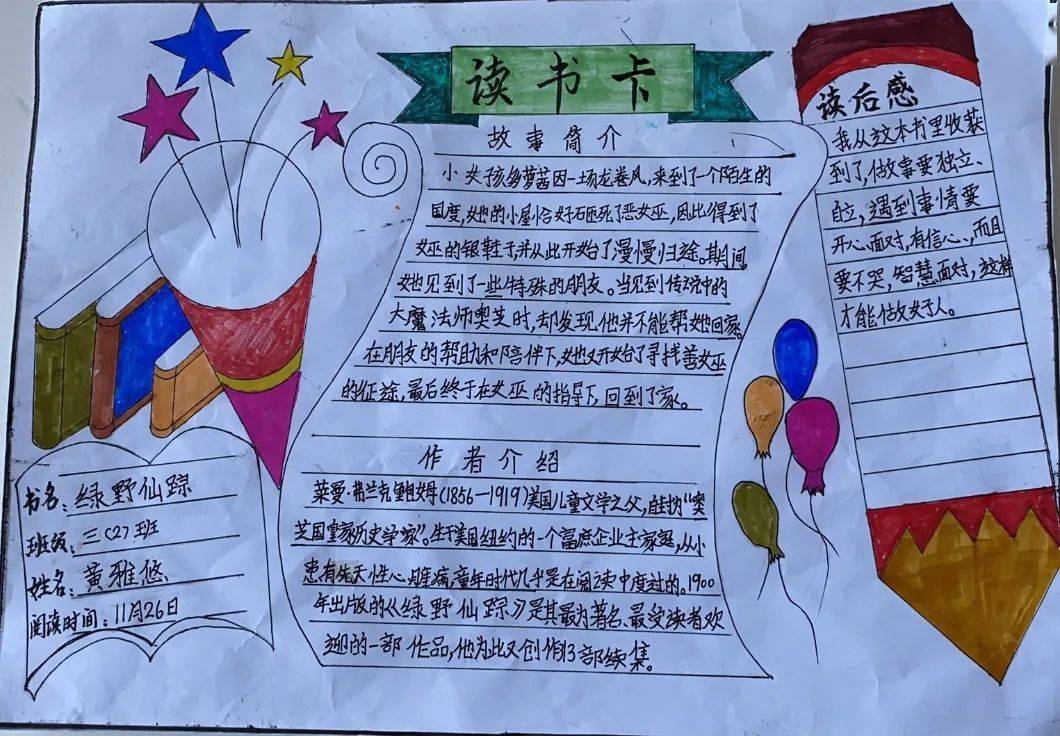 读书卡
故事简介
小女孩多萝茜因一场龙卷风,来到了一个陌生的
国度,她的小屋恰好砸死了恶女巫,因此得到了
女巫的银鞋子,并从此开始了漫慢归途。期间
她见到了一些特殊的朋友。当见到传说中的
大魔法师奥芝时,却发现他并不能帮她回家。
在朋友的帮助和陪伴下,她又开始了寻找善女巫
的征途,最后终于在女巫的指导下,回到了家。
作者介绍
莱曼·弗兰克·鲍姆(1856—1919)美国儿童文学之父,自封“奥
芝国皇家历史学家”。生于美国纽约的一个富庶企业主家庭,从小
患有先天性心脏病,童年时代几乎是在阅读中度过的。1900
年出版的《绿野仙踪》是其最为著名、最受读者欢
迎的一部作品,他为此又创作13部续集。
读后感
我从这本书里收获
到了,做事要独立、
自立,遇到事情要
开心面对,有信心、,而且
要不哭,智慧面对,这样
才能做好人。
书名:绿野仙踪
班级:三(27)班
姓名:黄雅悠
阅读时间:11月26日